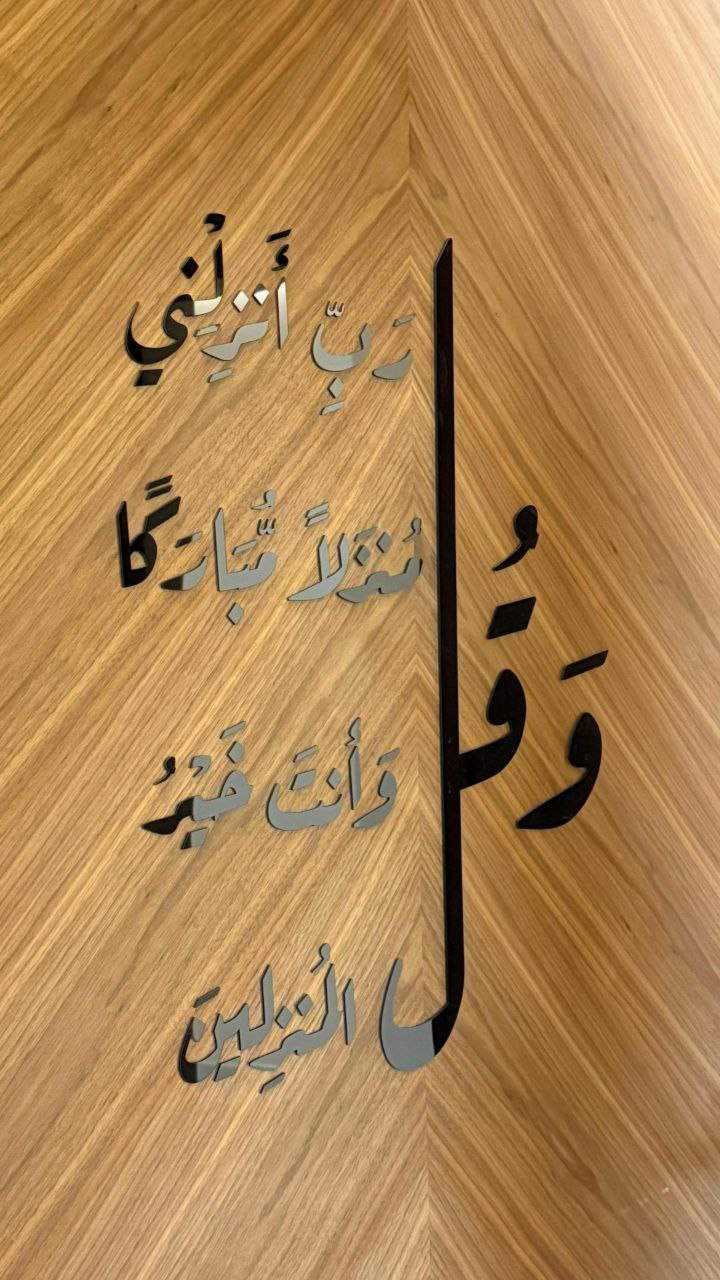 وَقُل
رَبِّ أَنزِلْنِي
مُنزَلاً مُّبَارَكًا
وَأَنتَ خَيْرُ
الْمُنزِلِينَ